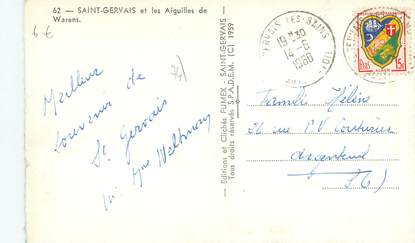 62 — SAINT-GERVAIS et les Aiguilles de
Warens.
6 €
74
Meilleur
souvenir de
St Gervais
Editions et Clichés FUMEX - SAINT-GERVAIS
Tous droits réservés S.P.A.D.E.M. (C) 1959
GERVAIS LES-BAINS
19H30
14-6
1960
15F
Famille Hélène
21 rue P V Couturier
Argenteuil